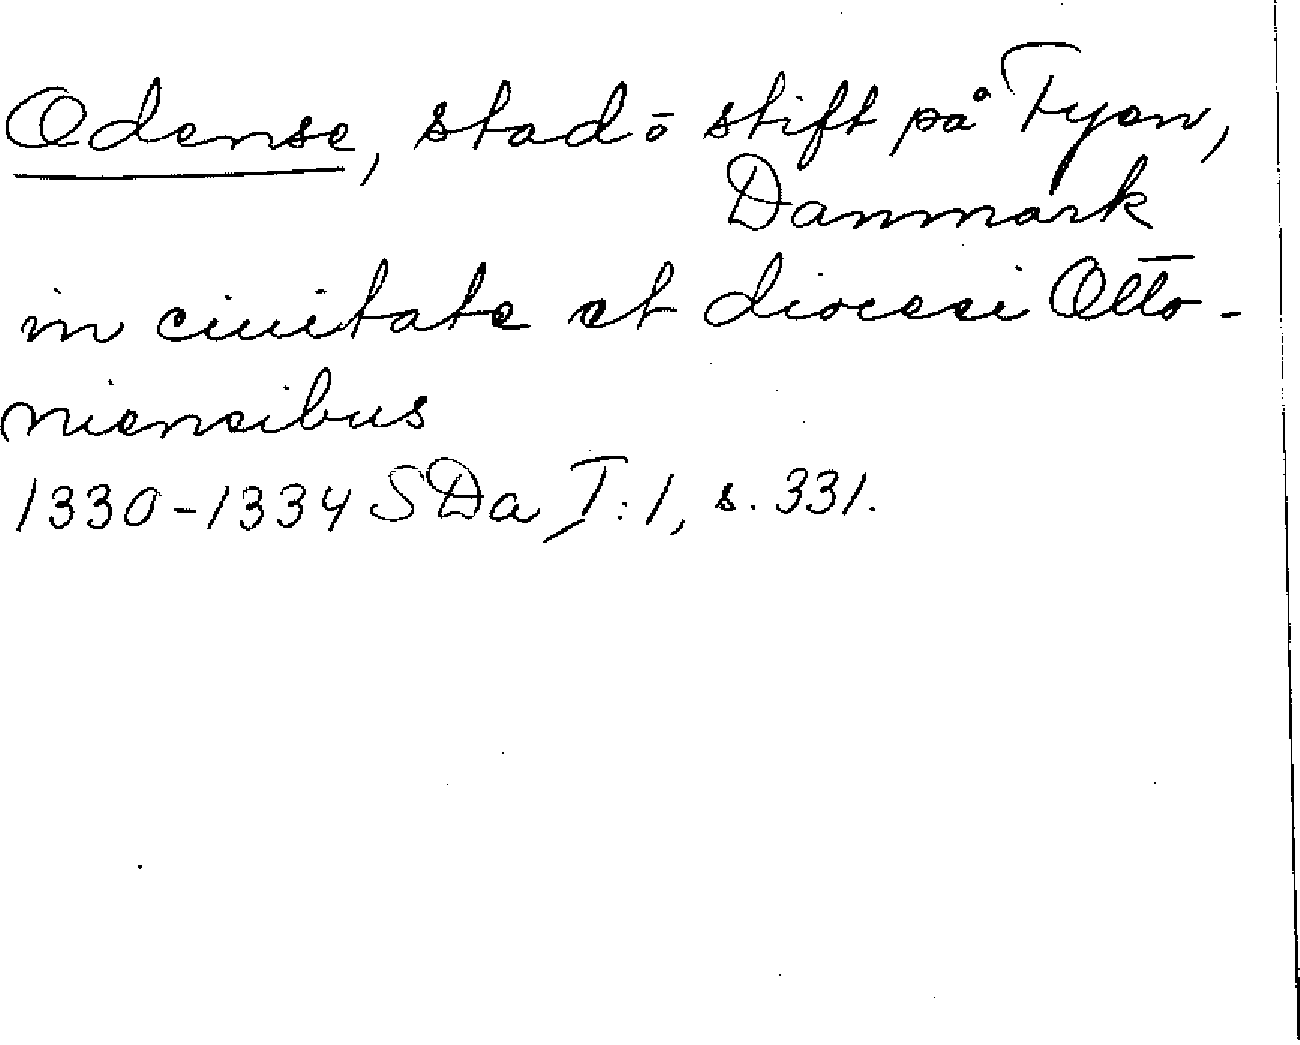 Odense, stad o stift på Fyen,
Danmark
in ciuitate et diocesi Otto-
niensibus
1330-1334 SDa I:1, s. 331.